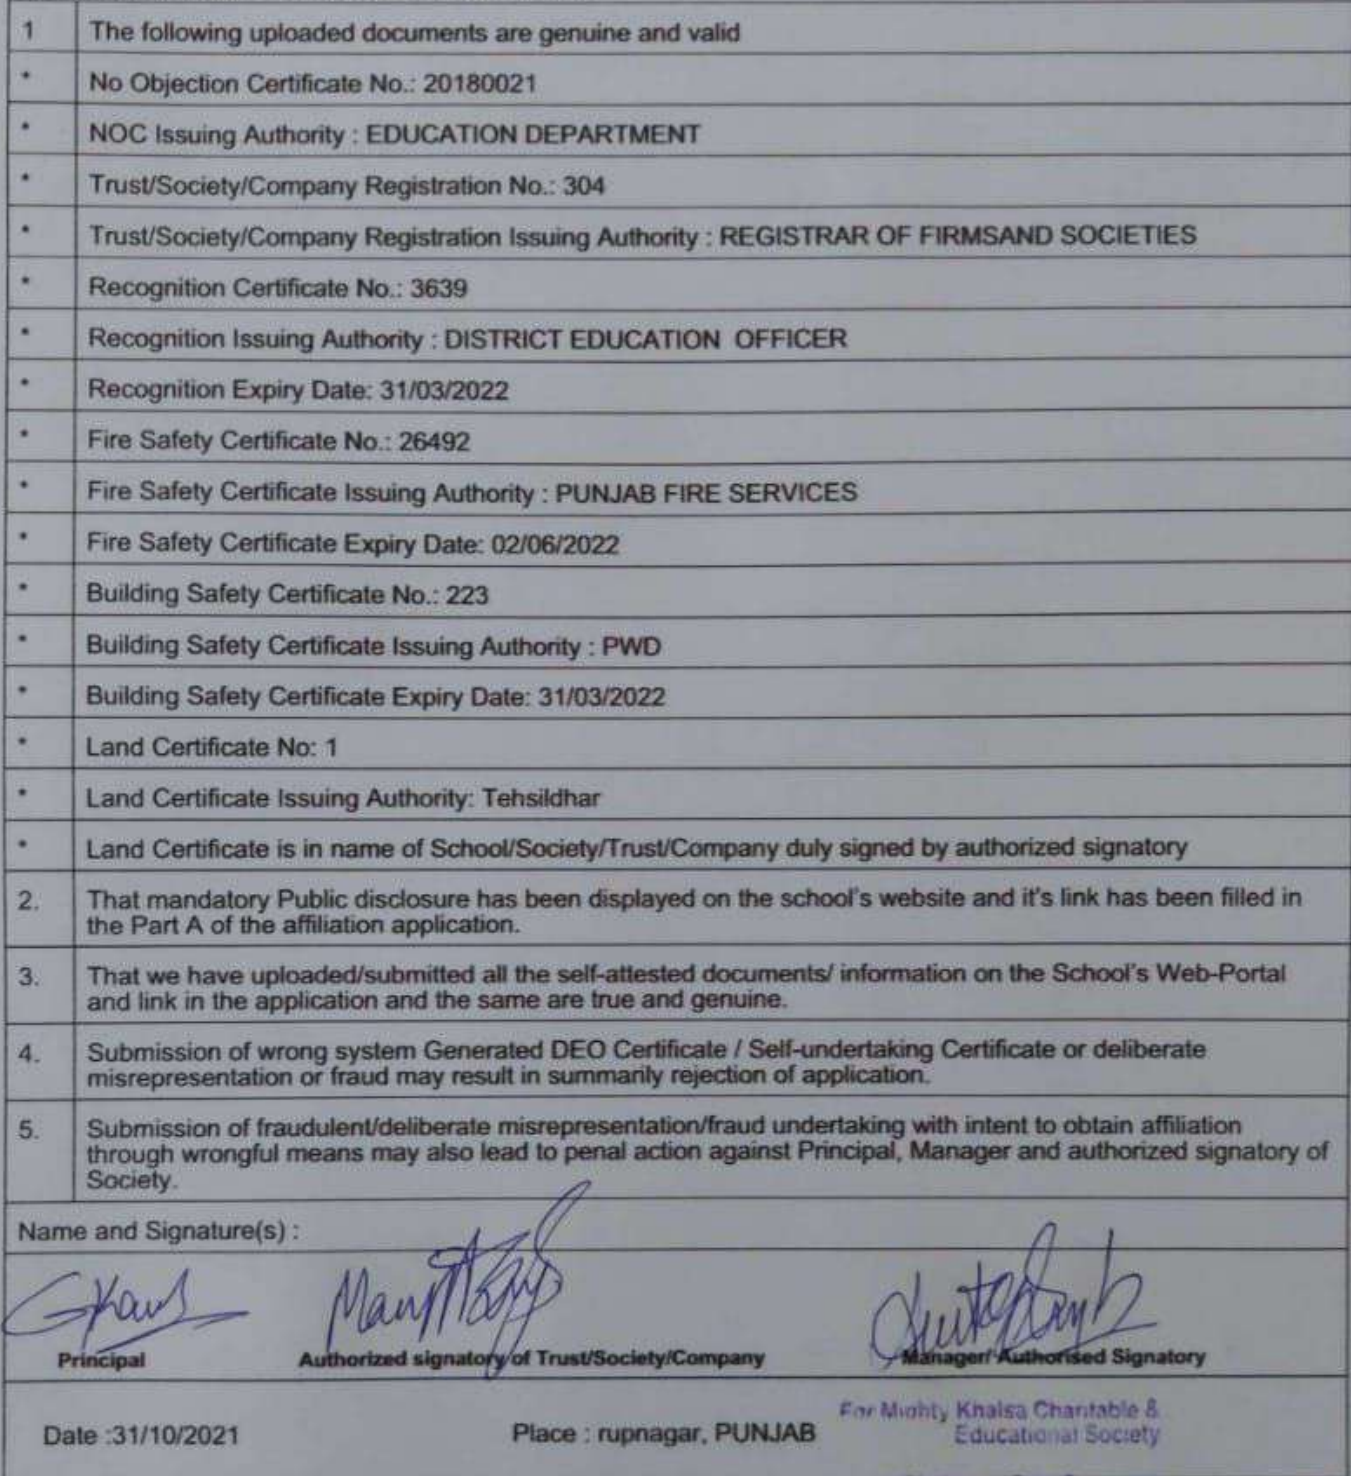 1 The following uploaded documents are genuine and valid
* No Objection Certificate No.: 20180021
* NOC Issuing Authority : EDUCATION DEPARTMENT
* Trust/Society/Company Registration No.: 304
* Trust/Society/Company Registration Issuing Authority : REGISTRAR OF FIRMSAND SOCIETIES
* Recognition Certificate No.: 3639
* Recognition Issuing Authority : DISTRICT EDUCATION OFFICER
* Recognition Expiry Date: 31/03/2022
* Fire Safety Certificate No.: 26492
* Fire Safety Certificate Issuing Authority : PUNJAB FIRE SERVICES
* Fire Safety Certificate Expiry Date: 02/06/2022
* Building Safety Certificate No.: 223
* Building Safety Certificate Issuing Authority : PWD
* Building Safety Certificate Expiry Date: 31/03/2022
* Land Certificate No: 1
* Land Certificate Issuing Authority: Tehsildhar
* Land Certificate is in name of School/Society/Trust/Company duly signed by authorized signatory
2. That mandatory Public disclosure has been displayed on the school's website and it's link has been filled in
the Part A of the affiliation application.
3. That we have uploaded/submitted all the self-attested documents/ information on the School's Web-Portal
and link in the application and the same are true and genuine.
4. Submission of wrong system Generated DEO Certificate / Self-undertaking Certificate or deliberate
misrepresentation or fraud may result in summarily rejection of application.
5. Submission of fraudulent/deliberate misrepresentation/fraud undertaking with intent to obtain affiliation
through wrongful means may also lead to penal action against Principal, Manager and authorized signatory of
Society.
Name and Signature(s) :
Principal Authorized signatory of Trust/Society/Company Manager/ Authorised Signatory
For Mighty Khalsa Charitable &
Educational Society
Date :31/10/2021 Place : rupnagar, PUNJAB